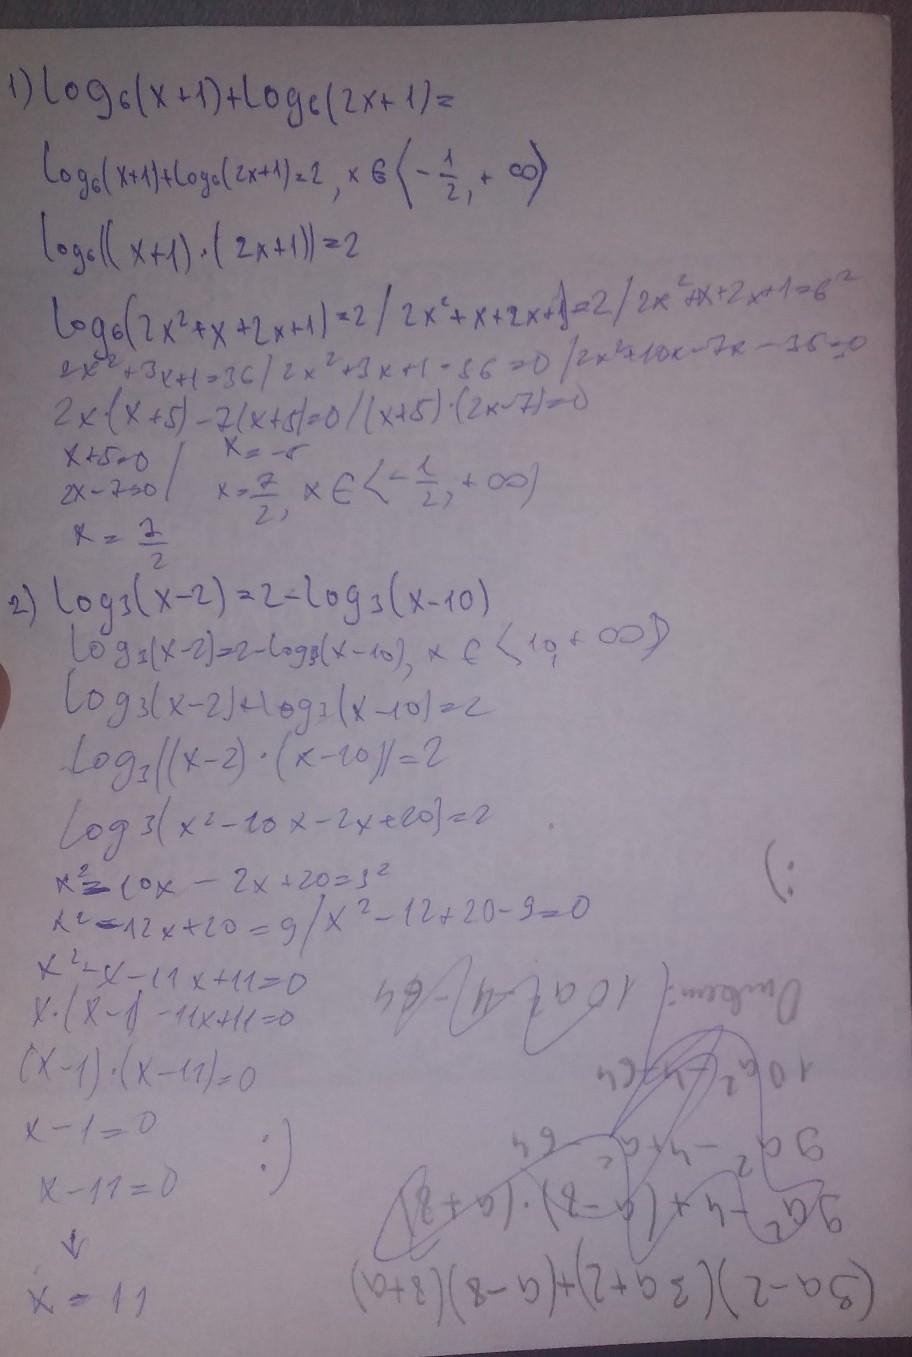 1) log₆(x+1)+log₆(2x+1)=
log₆(x+1)+log₆(2x+1)=2, x∈⟨-1/2,+∞⟩
log₆((x+1)·(2x+1))=2
log₆(2x²+x+2x+1)=2/2x²+x+2x+1)=2/2x²+x+2x+1=6²
2x²+3x+1=36/2x²+3x+1-36=0/2x²+10x-7x-35=0
2x·(x+5)-7(x+5)=0/(x+5)·(2x-7)=0
x+5=0 / x=-5
2x-7=0 / x=7/2, x∈⟨-1/2,+∞)
x=7/2
2) log₃(x-2)=2-log₃(x-10)
log₃(x-2)=2-log₃(x-10), x∈⟨10,+∞⟩
log₃(x-2)+log₃(x-10)=2
log₃((x-2)·(x-10))=2
log3(x²-10x-2x+20)=2
x²-10x-2x+20=3²
x²-12x+20=9/x²-12+20-9=0
x²-x-11x+11=0
x·(x-1)-11x+11=0
(x-1)·(x-11)=0
x-1=0
:)
x-11=0
↓
x=11
:)
(3a-2)(3a+2)+(a-8)(8+a)
9a²-4+(a-8)·(a+8)
9a²-4+a² 64
10a²-4-64
Ответ: 10a²-4-64